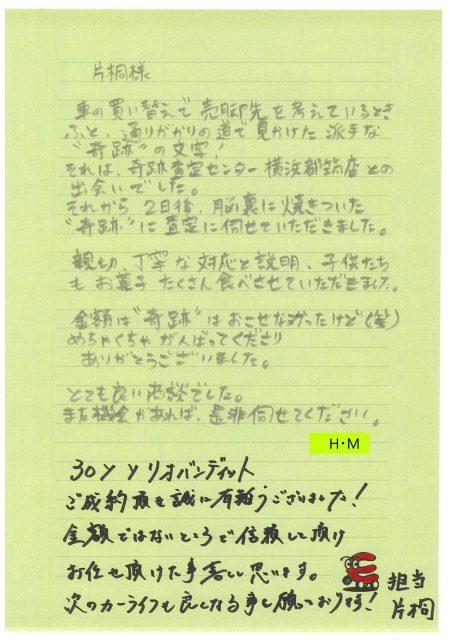 片桐様
車の買い替えで売却先を考えているとき
ふと、通りがかりの道で見かけた派手な
"奇跡"の文字!
それは、奇跡査定センター横浜都筑店との
出会いでした。
それから2日後、脳裏に焼きついた
"奇跡"に査定に伺せていただきました。
親切、丁寧な対応と説明、子供たち
もお菓子たくさん食べさせていただきました。
金額は"奇跡"はおこせなかったけど(笑)
めちゃくちゃがんばってくださり
ありがとうございました。
とても良い商談でした。
また機会があれば、是非伺せてください。
H・M
30ソリオバンディット
ご成約頂き誠に有難うございました!
金額ではないところで信頼して頂け
お任せ頂けた事嬉しく思います。
次のカーライフも良くなる事を願っております!
担当
片桐